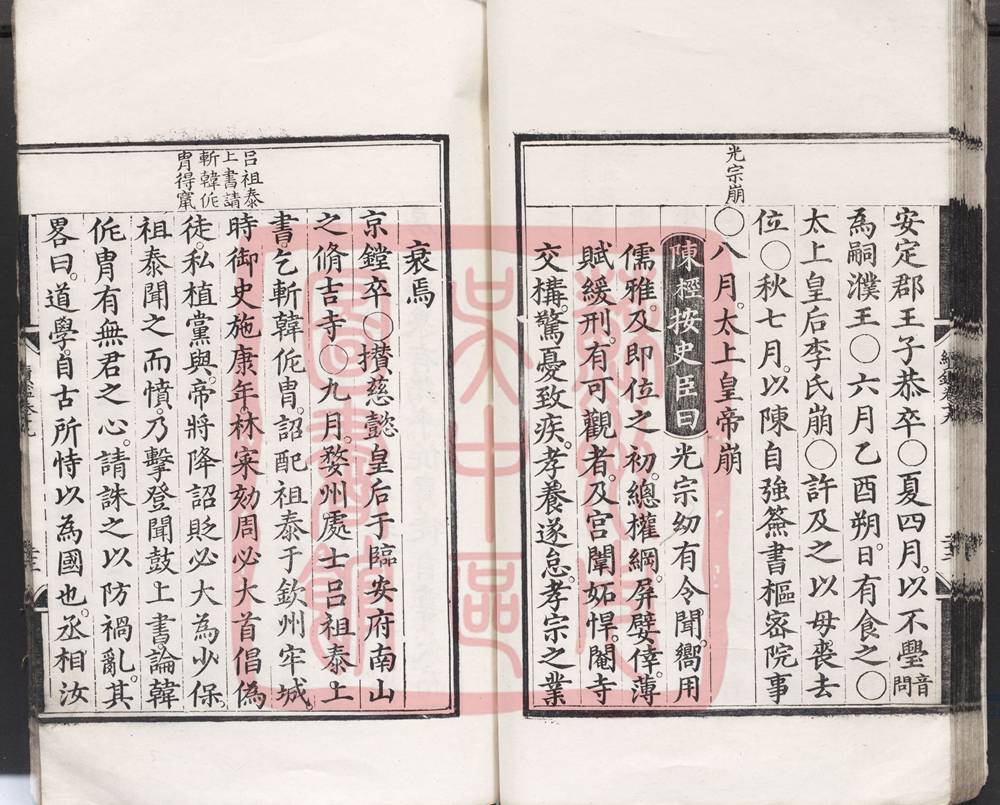 光宗崩
安定郡王子恭卒○夏四月以不璺音問
為嗣濮王○六月乙酉朔日有食之○
太上皇后李氏崩○許及之以母喪去
位○秋七月以陳自強簽書樞密院事
○八月太上皇帝崩
陳桱按史臣曰光宗幼有令聞嚮用
儒雅及即位之初總權綱屏嬖倖薄
賦緩刑有可觀者及宮闈妬悍閹寺
交構驚憂致疾孝養遂怠孝宗之業
呂祖泰
上書請
斬韓侂
胄得竄
衰焉
京鏜卒○攅慈懿皇后于臨安府南山
之脩吉寺○九月婺州處士呂祖泰上
書乞斬韓侂胄詔配祖泰于欽州牢城
時御史施康年林寀劾周必大首倡偽
徒私植黨與帝將降詔貶必大為少保
祖泰聞之而憤乃擊登聞鼓上書論韓
侂胄有無君之心請誅之以防禍亂其
畧曰道學自古所恃以為國也丞相汝